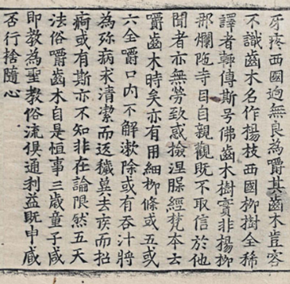 牙疼西國迥無良為嚼其齒木豈容
不識齒木名作楊枝西國柳樹全稀
譯者輒傳斯号佛齒木樹實非楊柳
那爛陀寺目自親觀既不取信於他
聞者亦無勞致惑撿涅槃經梵本云
嚼齒木時矣亦有用細柳條或五或
六全嚼口內不解漱除或有吞汁將
為殄病求清潔而返穢冀去疾而招
痾或有斯亦不知非在論限然五天
法俗嚼齒木自是恒事三歲童子咸
即教為聖教俗流俱通利益既申臧
否行捨隨心